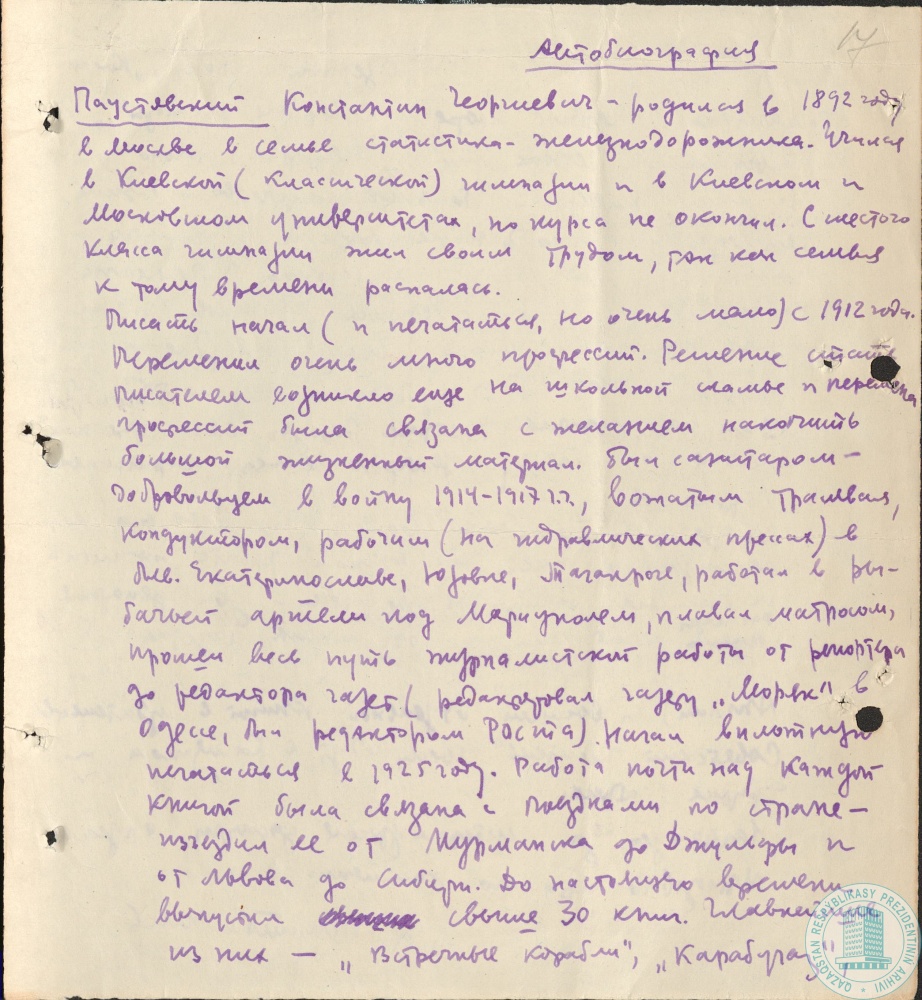 17
Автобиография
Паустовский Константин Георгиевич – родился в 1892 году
в Москве в семье статистика-железнодорожника. Учился
в Киевской (классической) гимназии и в Киевском и
Московском университетах, но курса не окончил. С шестого
класса гимназии жил своим трудом, так как семья
к тому времени распалась.
Писать начал (и печататься, но очень мало) с 1912 года.
Переменил очень много профессий. Решение стать
писателем возникло еще на школьной скамье и перемена
профессий была связана с желанием накопить
большой жизненный материал. Был санитаром –
добровольцем в войну 1914–1917 г.г., вожатым трамвая,
кондуктором, рабочим (на гидравлических прессах) в
Екатеринославе, Юзовке, Таганроге, работал в ры-
бачьей артели под Мариуполем, плавал матросом,
прошел весь путь журналистской работы от репортера
до редактора газет (редактировал газету „Моряк" в
Одессе, был редактором Роста). Начал вплотную
печататься в 1925 году. Работа почти над каждой
книгой была связана с поездками по стране –
изъездил ее от Мурманска до Джульфы и
от Львова до Сибири. До настоящего времени
выпустил свыше 30 книг. Главнейшие
из них – „Встречные корабли", „Карабугаз",
QAZAQSTAN RESPÝBLIKASY PREZIDENTINIŃ ARHIVI